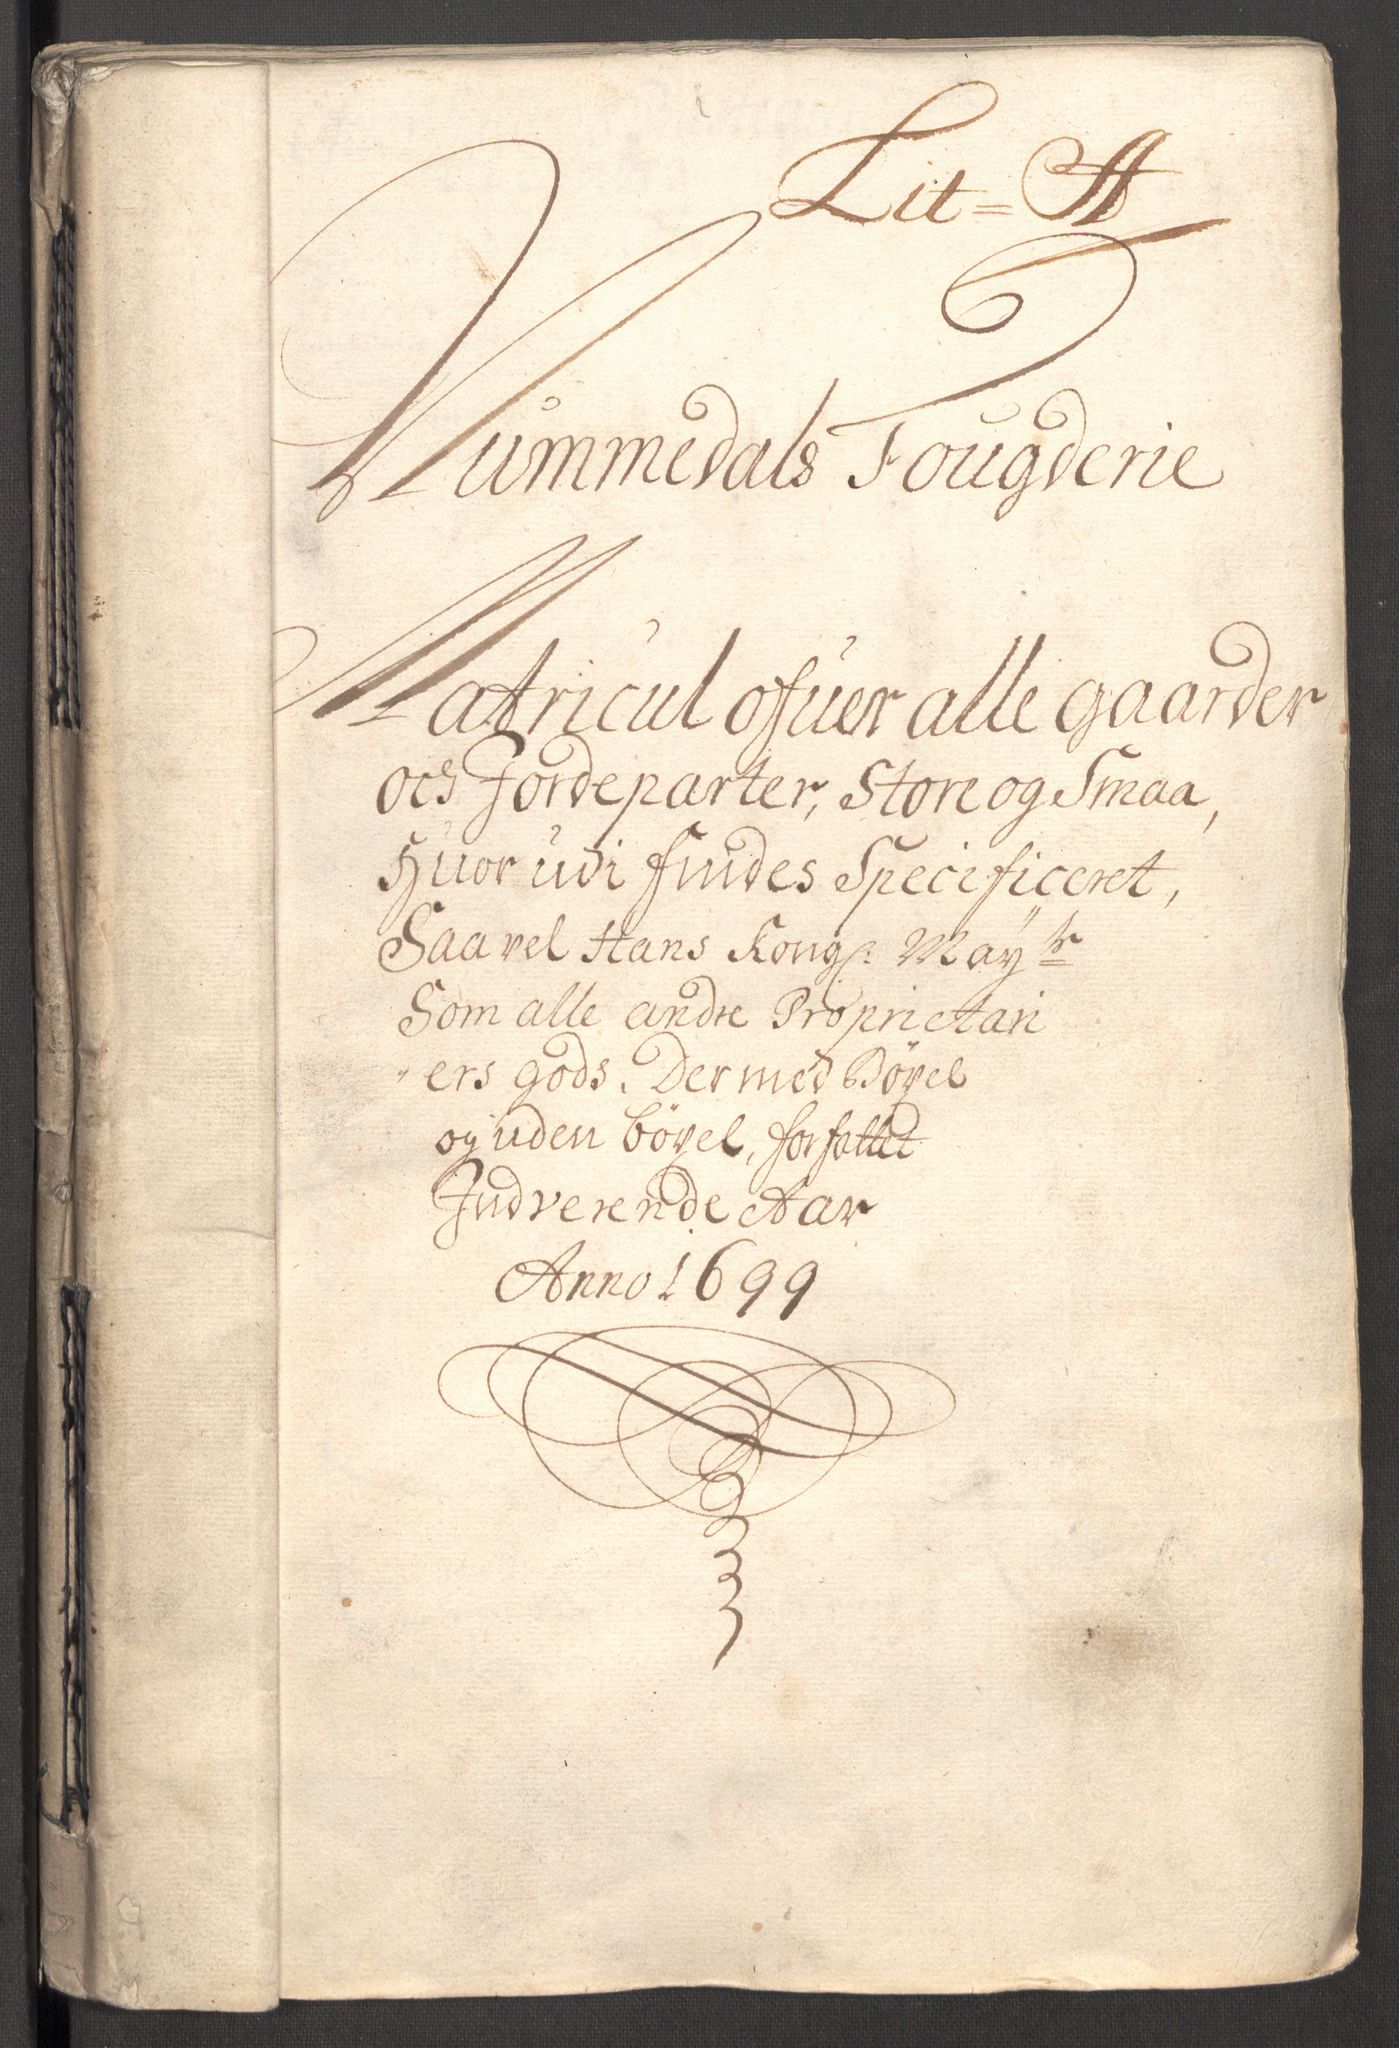 Lit = A
Nummedals Fougderie
Matricul ofuer alle gaarder
och Jordeparter, Store og Smaa,
Huor udi findes Specificeret,
Saavel Hans Kongl: Mayts
Som alle andre Proprietari
"ers gods. Der med Böxel
og uden böxel, forfattet
Indverende Aar
Anno 1699